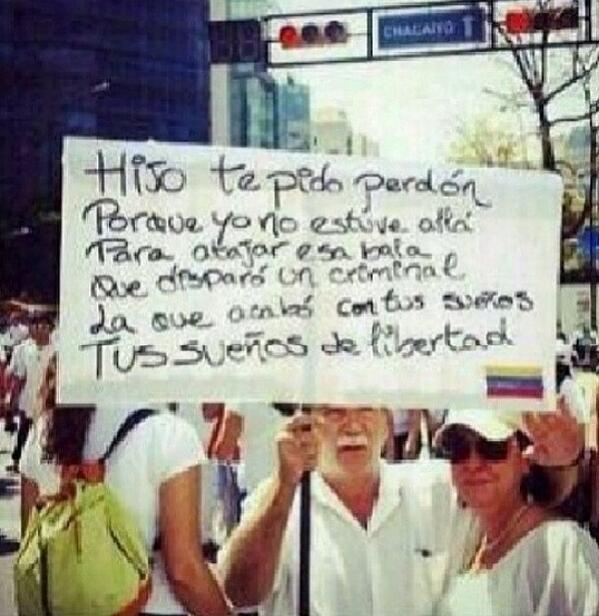 CHACAITO
Hijo te pido perdón
Porque yo no estúve allá
Para atajar esa bala
Que disparó un criminal
La que acabó con tus sueños
Tus sueños de libertad